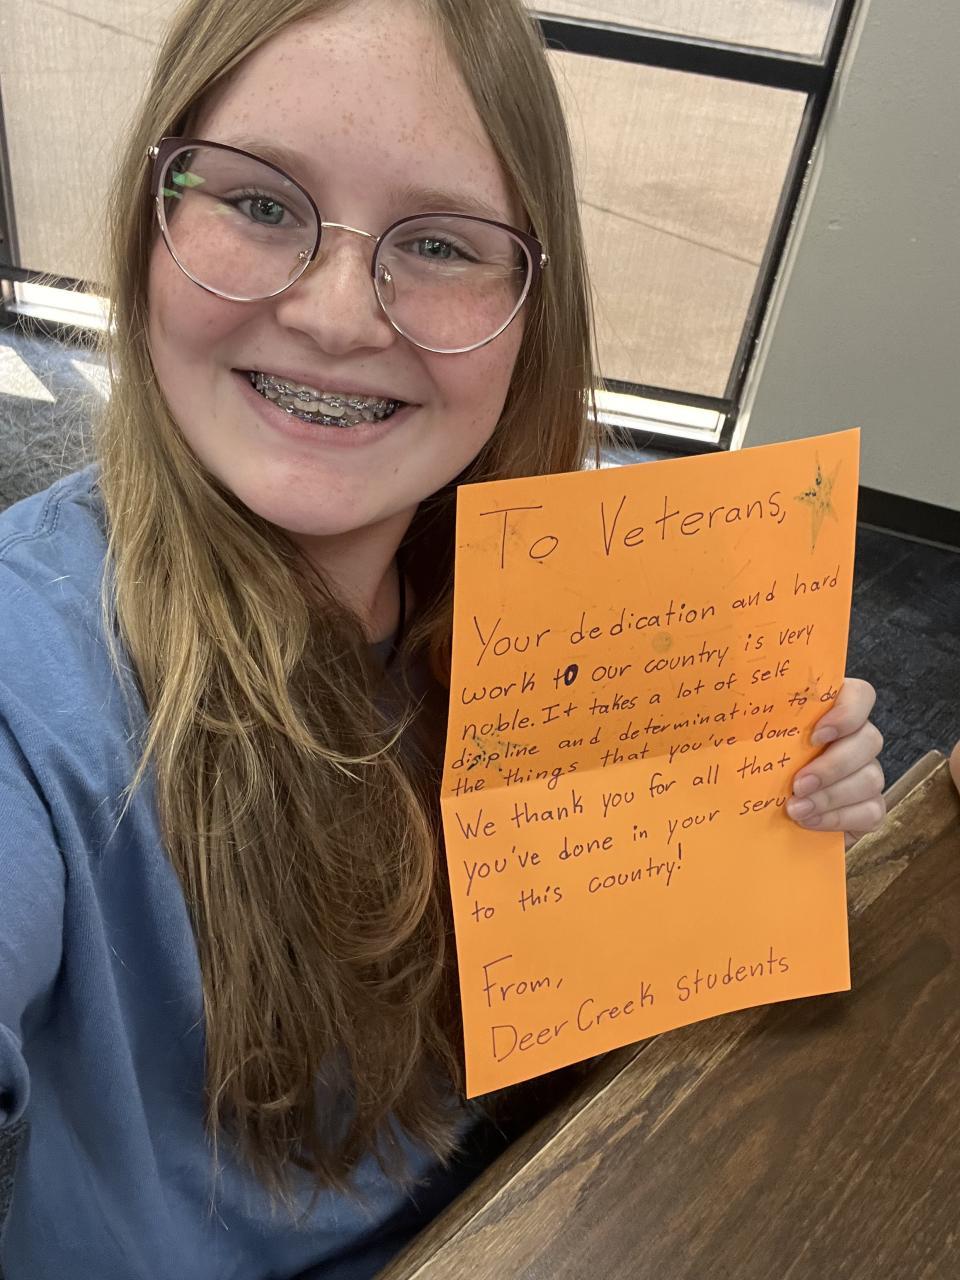 To Veterans,
Your dedication and hard
work to our country is very
noble. It takes a lot of self
disipline and determination to do
the things that you've done.
We thank you for all that
you've done in your serv
to this country!
From,
Deer Creek Students